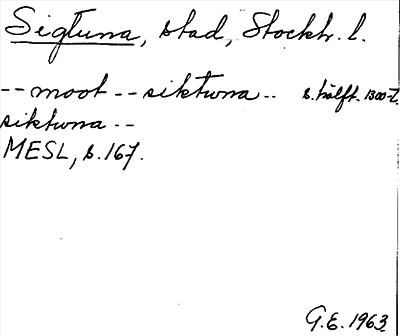 Sigtuna, stad, Stockh. l.
-- moot -- siktuna -- s. hälft. 1300-t.
siktuna --
MESL, s. 167.
G.E. 1963